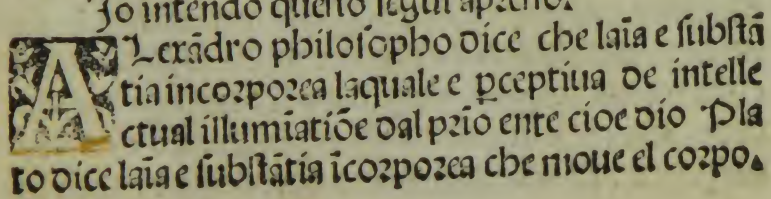 Jo intendo questo segui apresso.
ALexādro philosopho dice che laīa e substā
tia incorporea laquale e ꝑceptiua de intelle
ctual illumiatiōe dal prīo ente cioe dio Pla
to dice laīa e substātia īcorporea che moue el corpo.